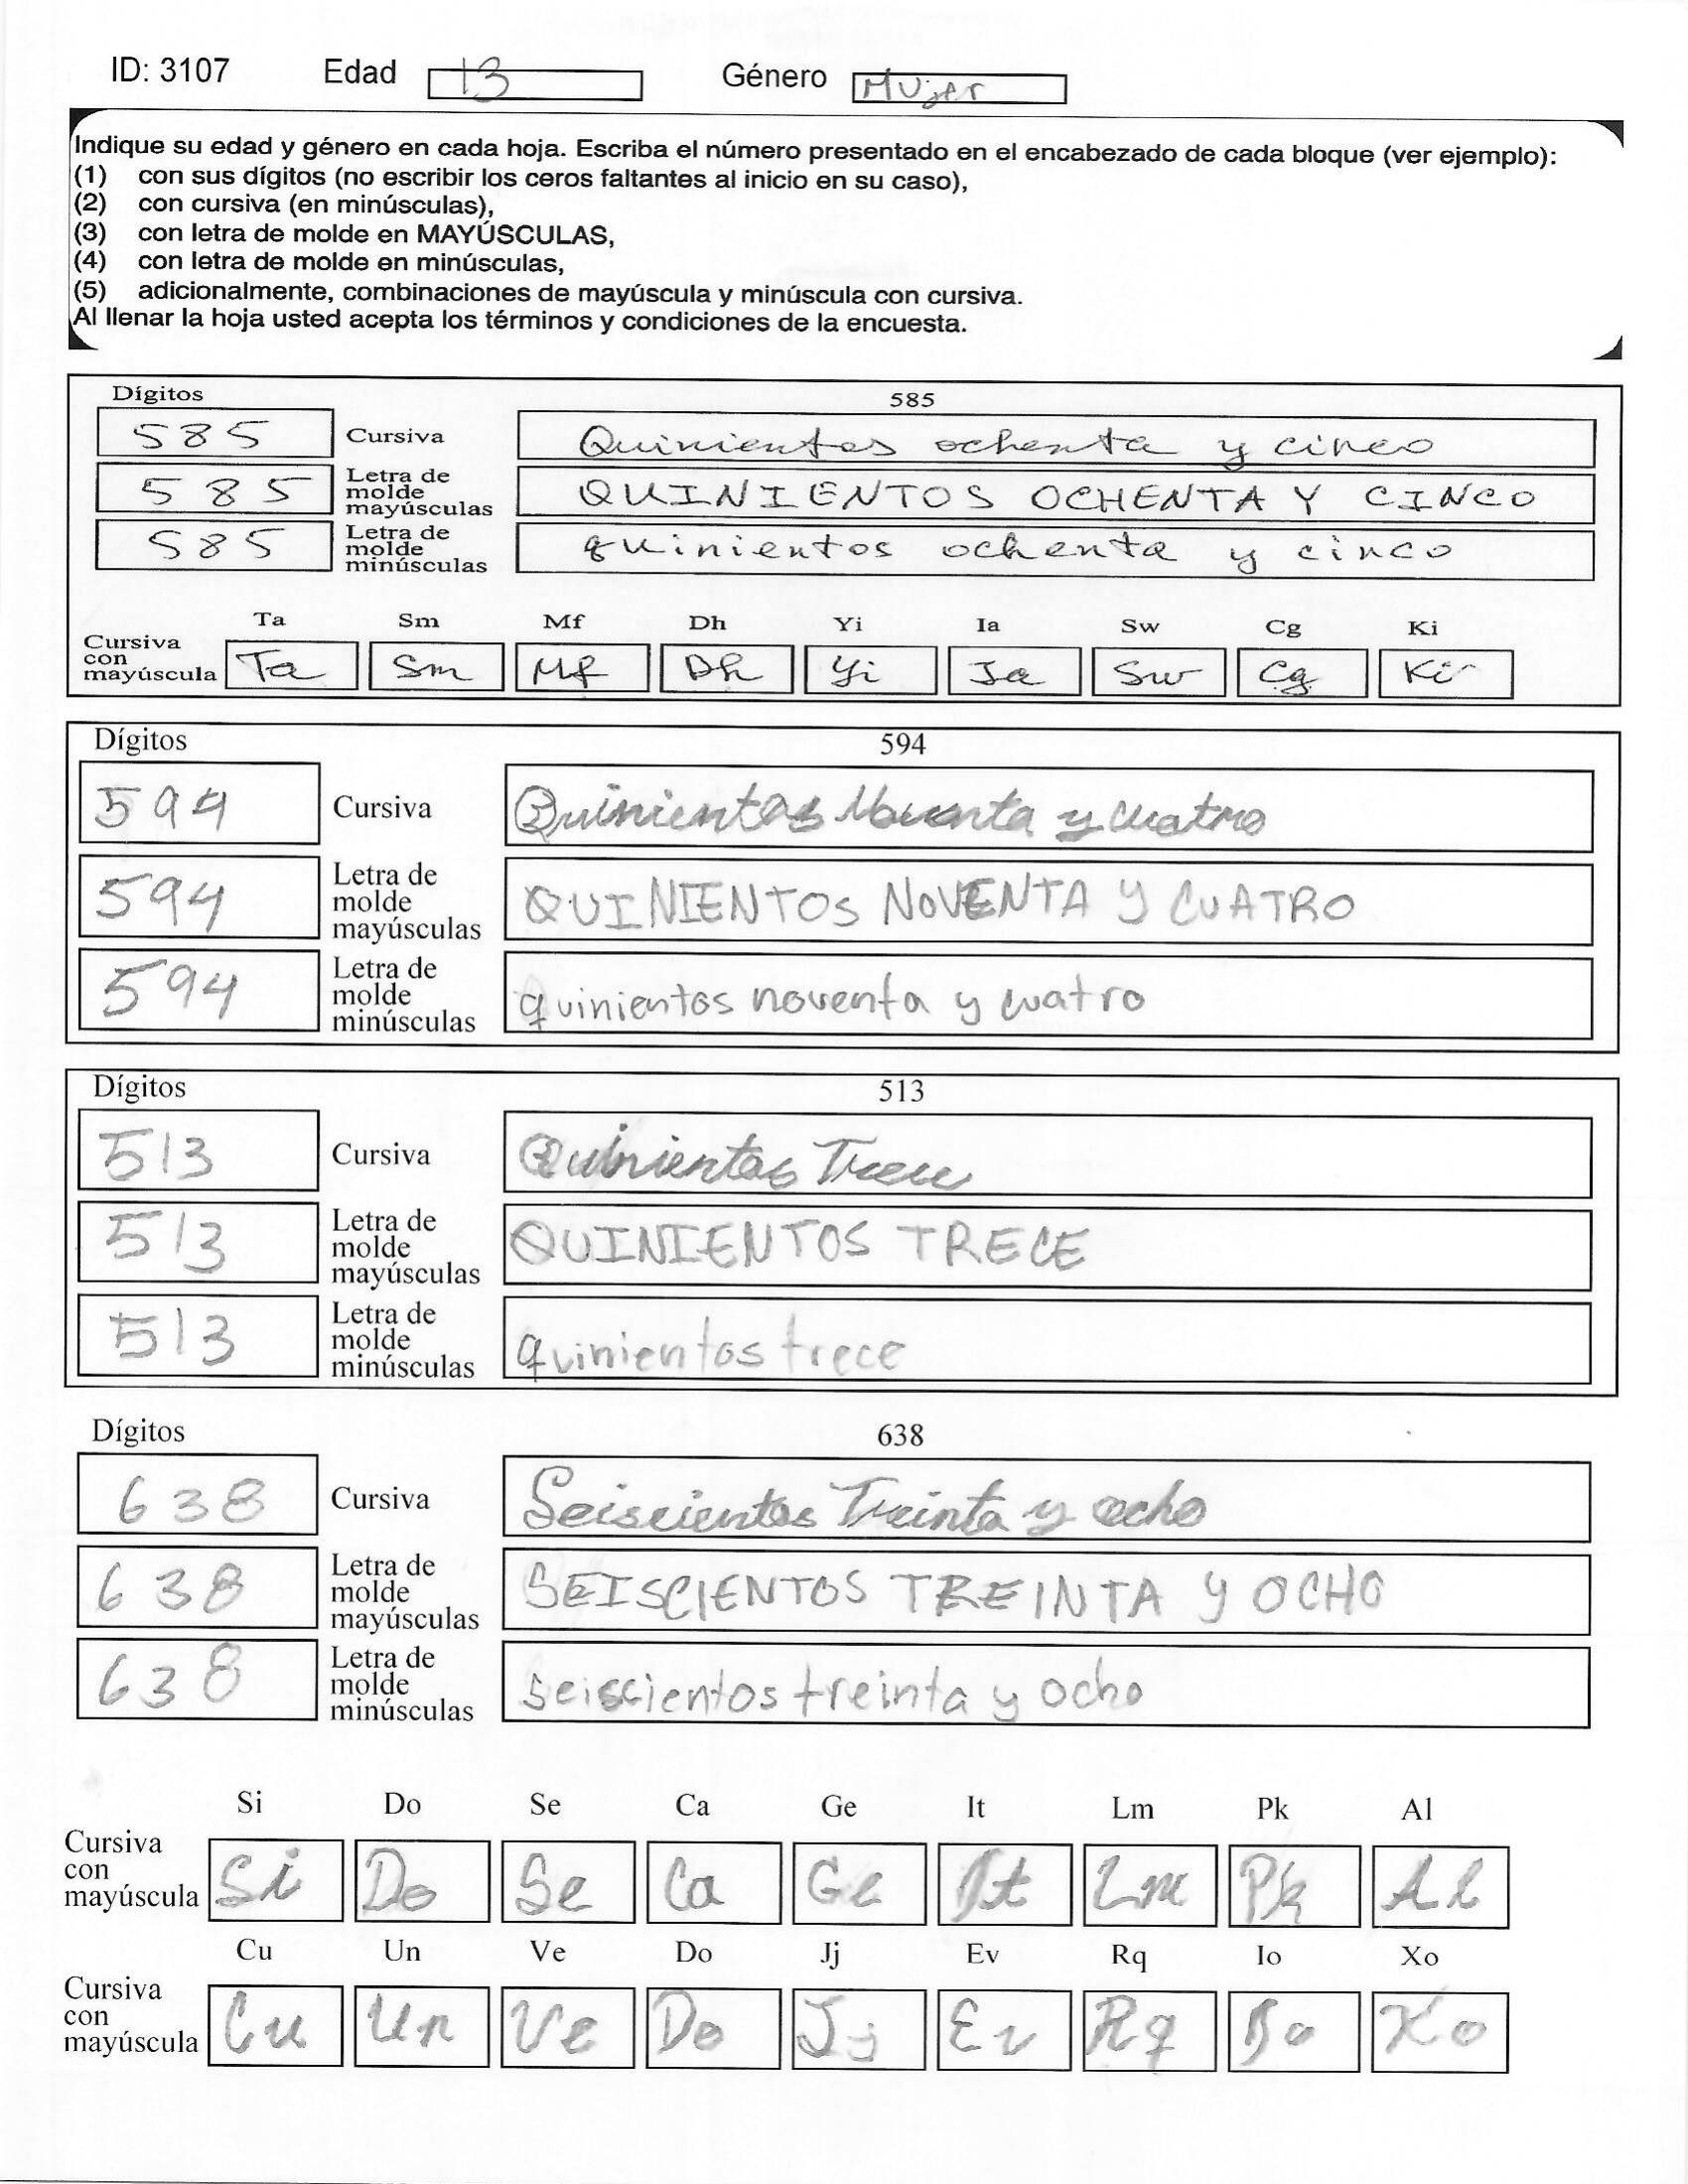 ID: 3107 Edad 13 Género Mujer
Indique su edad y género en cada hoja. Escriba el número presentado en el encabezado de cada bloque (ver ejemplo):
(1) con sus dígitos (no escribir los ceros faltantes al inicio en su caso),
(2) con cursiva (en minúsculas),
(3) con letra de molde en MAYÚSCULAS,
(4) con letra de molde en minúsculas,
(5) adicionalmente, combinaciones de mayúscula y minúscula con cursiva.
Al llenar la hoja usted acepta los términos y condiciones de la encuesta.
Dígitos 585
585 Cursiva Quinientos ochenta y cinco
585 Letra de molde mayúsculas QUINIENTOS OCHENTA Y CINCO
585 Letra de molde minúsculas quinientos ochenta y cinco
Ta Sm Mf Dh Yi Ia Sw Cg Ki
Cursiva con mayúscula Ta Sm Mf Dh Yi Ia Sw Cg Ki
Dígitos 594
594 Cursiva Quinientos Noventa y cuatro
594 Letra de molde mayúsculas QUINIENTOS NOVENTA Y CUATRO
594 Letra de molde minúsculas quinientos noventa y cuatro
Dígitos 513
513 Cursiva Quinientos Trece
513 Letra de molde mayúsculas QUINIENTOS TRECE
513 Letra de molde minúsculas quinientos trece
Dígitos 638
638 Cursiva Seiscientos Treinta y ocho
638 Letra de molde mayúsculas SEISCIENTOS TREINTA Y OCHO
638 Letra de molde minúsculas seiscientos treinta y ocho
Si Do Se Ca Ge It Lm Pk Al
Cursiva con mayúscula Si Do Se Ca Ge It Lm Pk Al
Cu Un Ve Do Jj Ev Rq Io Xo
Cursiva con mayúscula Cu Un Ve Do Jj Ev Rq Io Xo